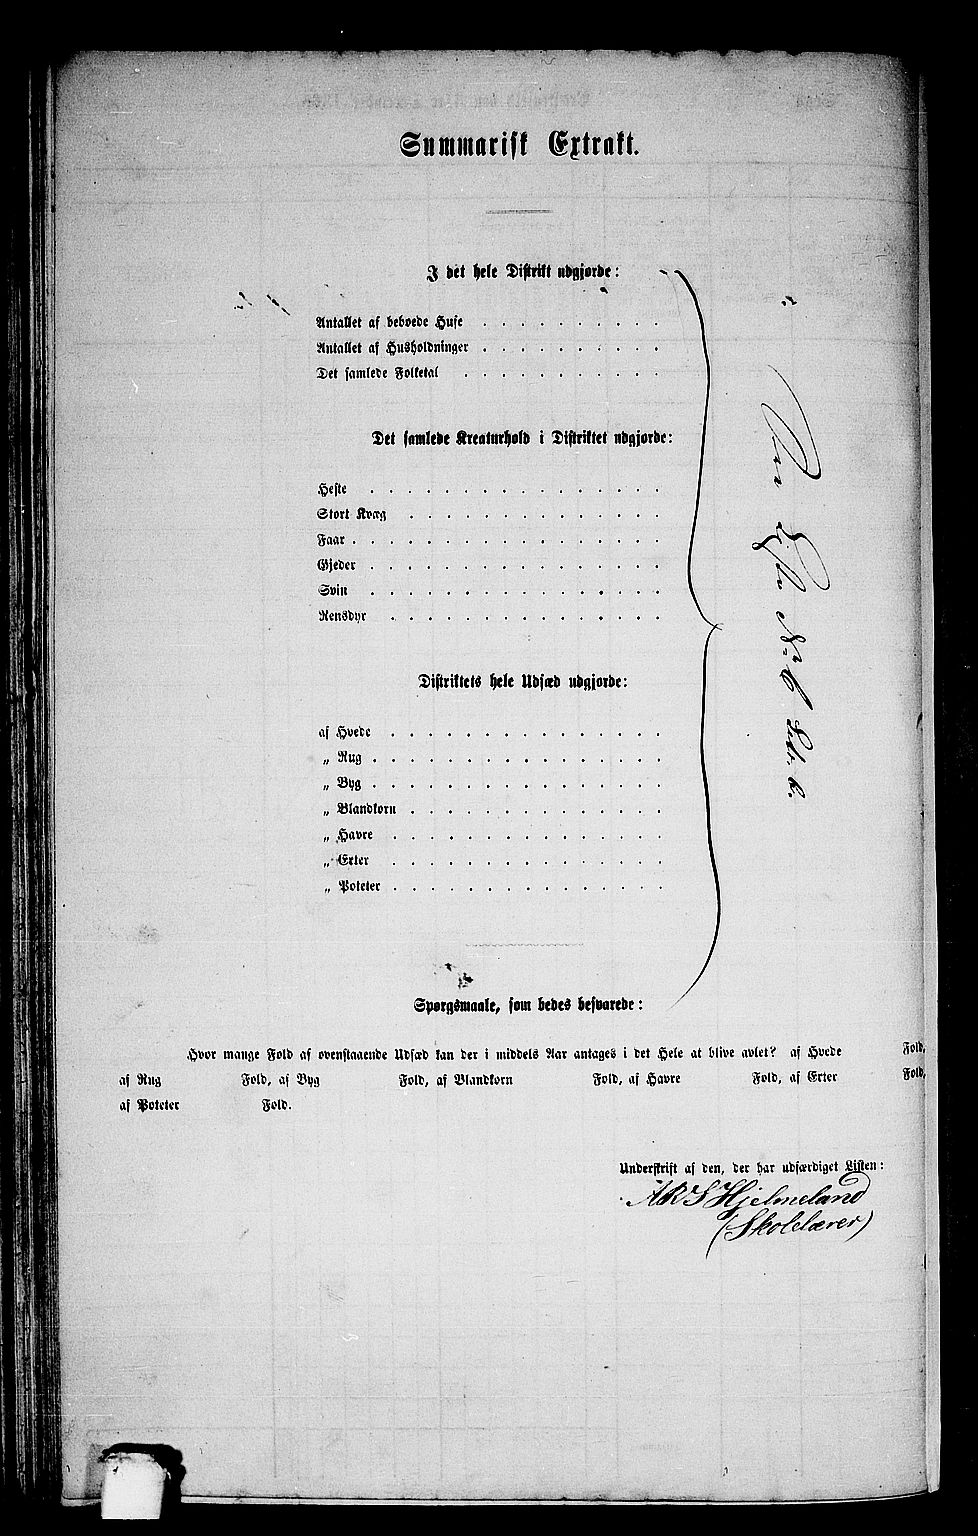 Summarisk Extrakt.
I det hele Distrikt udgjorde:
Antallet af beboede Huse . . . . . . . .
Antallet af Husholdninger . . . . . . . .
Det samlede Folketal . . . . . . . . .
Det samlede Kreaturhold i Distriktet udgjorde:
Heste . . . . . . . . . . . . .
Stort Kvæg . . . . . . . . . . .
Faar . . . . . . . . . . . . . .
Gjeder . . . . . . . . . . . . .
Svin . . . . . . . . . . . . .
Rensdyr . . . . . . . . . . . .
Distriktets hele Udsæd udgjorde:
af Hvede . . . . . . . . . . . .
„ Rug . . . . . . . . . . . . .
„ Byg . . . . . . . . . . . . .
„ Blandkorn . . . . . . . . . . .
„ Havre . . . . . . . . . . . .
„ Erter . . . . . . . . . . . .
„ Poteter . . . . . . . . . . . .
Liste No 6 Litr. k.
Spørgsmaale, som bedes besvarede:
Hvor mange Fold af ovenstaaende Udsæd kan der i middels Aar antages i det Hele at blive avlet? af Hvede Fold,
af Rug Fold, af Byg Fold, af Blandkorn Fold, af Havre Fold, af Erter Fold,
af Poteter Fold.
Underskrift af den, der har udfærdiget Listen:
ARS Hjelmeland
(Skolelærer)